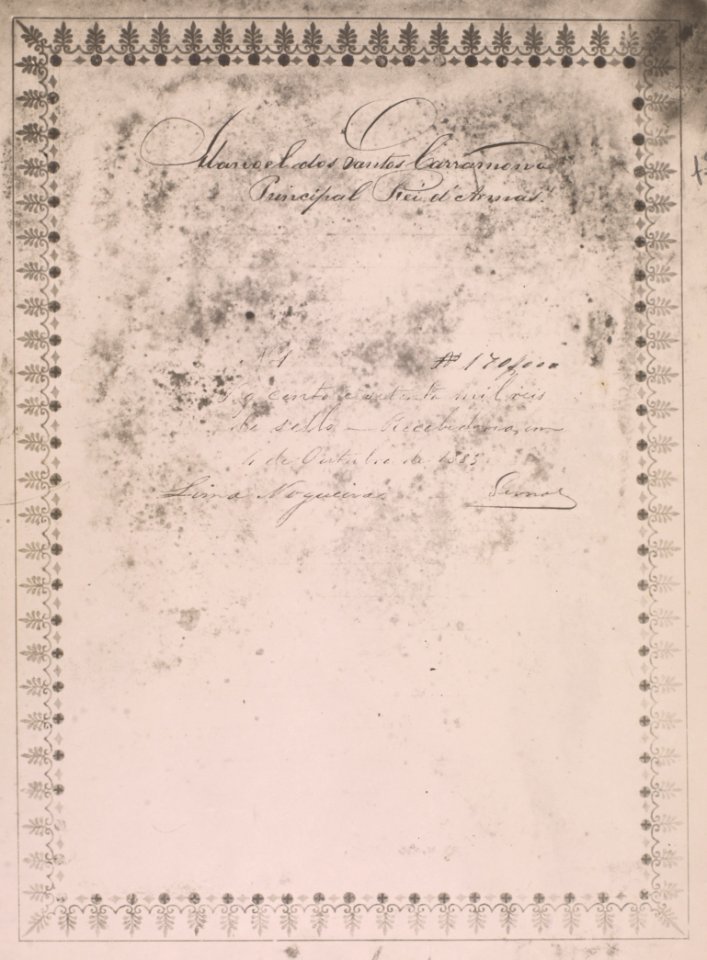 Manoel dos Santos Carramona
Principal Rei d'Armas
N 1 # 170$000
Pg cento e setenta mil reis
de sello – Recebedoria, em
4 de Outubro de 1883.
Lima Nogueira